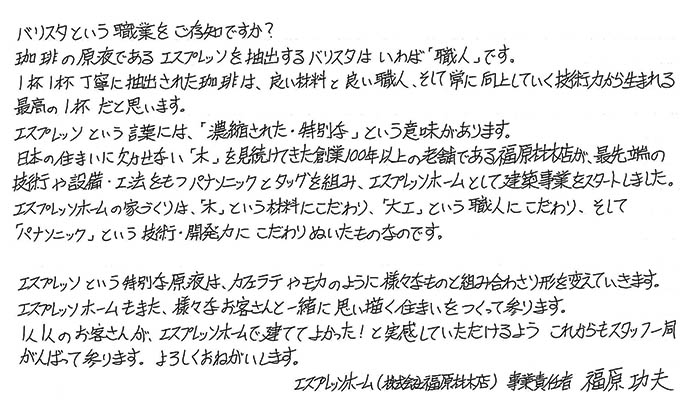 バリスタという職業をご存知ですか?
珈琲の原液であるエスプレッソを抽出するバリスタはいわば「職人」です。
1杯1杯丁寧に抽出された珈琲は、良い材料と良い職人、そして常に向上していく技術力から生まれる
最高の1杯だと思います。
エスプレッソという言葉には、「濃縮された・特別な」という意味があります。
日本の住まいに欠かせない「木」を見続けてきた創業100年以上の老舗である福原材木店が、最先端の
技術や設備・工法をもつパナソニックとタッグを組み、エスプレッソホームとして建築事業をスタートしました。
エスプレッソホームの家づくりは、「木」という材料にこだわり、「大工」という職人にこだわり、そして
「パナソニック」という技術・開発力にこだわりぬいたものなのです。
エスプレッソという特別な原液は、カフェラテやモカのように様々なものと組み合わさり形を変えていきます。
エスプレッソホームもまた、様々なお客さんと一緒に思い描く住まいをつくって参ります。
1人1人のお客さんが、エスプレッソホームで建ててよかった!と実感していただけるようこれからもスタッフ一同
がんばって参ります。よろしくおねがいします。
エスプレッソホーム(株式会社福原材木店) 事業責任者 福原 功夫